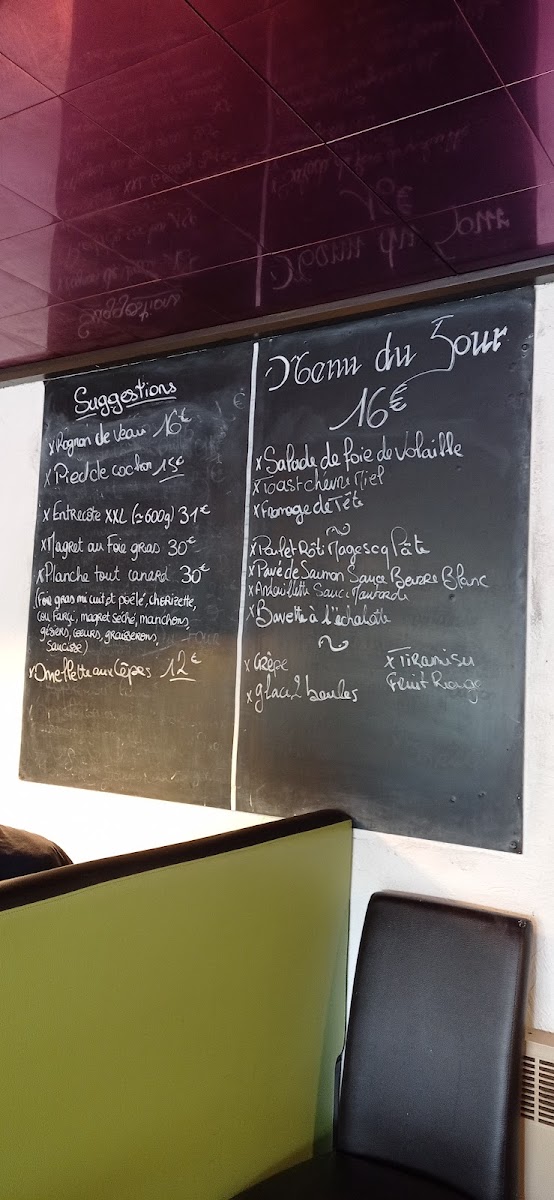 Suggestions
x Rognon de veau 16€
x Pied de cochon 15€
x Entrecôte XXL (≃600g) 31€
x Magret au foie gras 30€
x Planche tout canard 30€
(Foie gras mi cuit et poêlé, chorizette,
cou farçi, magret séché, manchons,
gésiers, coeurs, graisserons,
saucisse)
x Omelette aux Cèpes 12€
Menu du Jour
16€
x Salade de foie de volaille
x Toast chèvre Miel
x Fromage de Tête
x Poulet Rôti Magescq Pâte
x Pavé de Saumon Sauce Beurre Blanc
x Andouillette Sauce Moutarde
x Bavette à l'échalote
x Crêpe
x glace 2 boules
x Tiramisu
Fruit Rouge